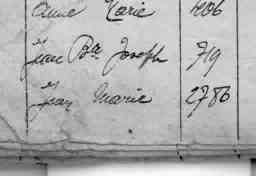 Anne Marie 406
Jean Bte Joseph 719
Jean Marie 2786